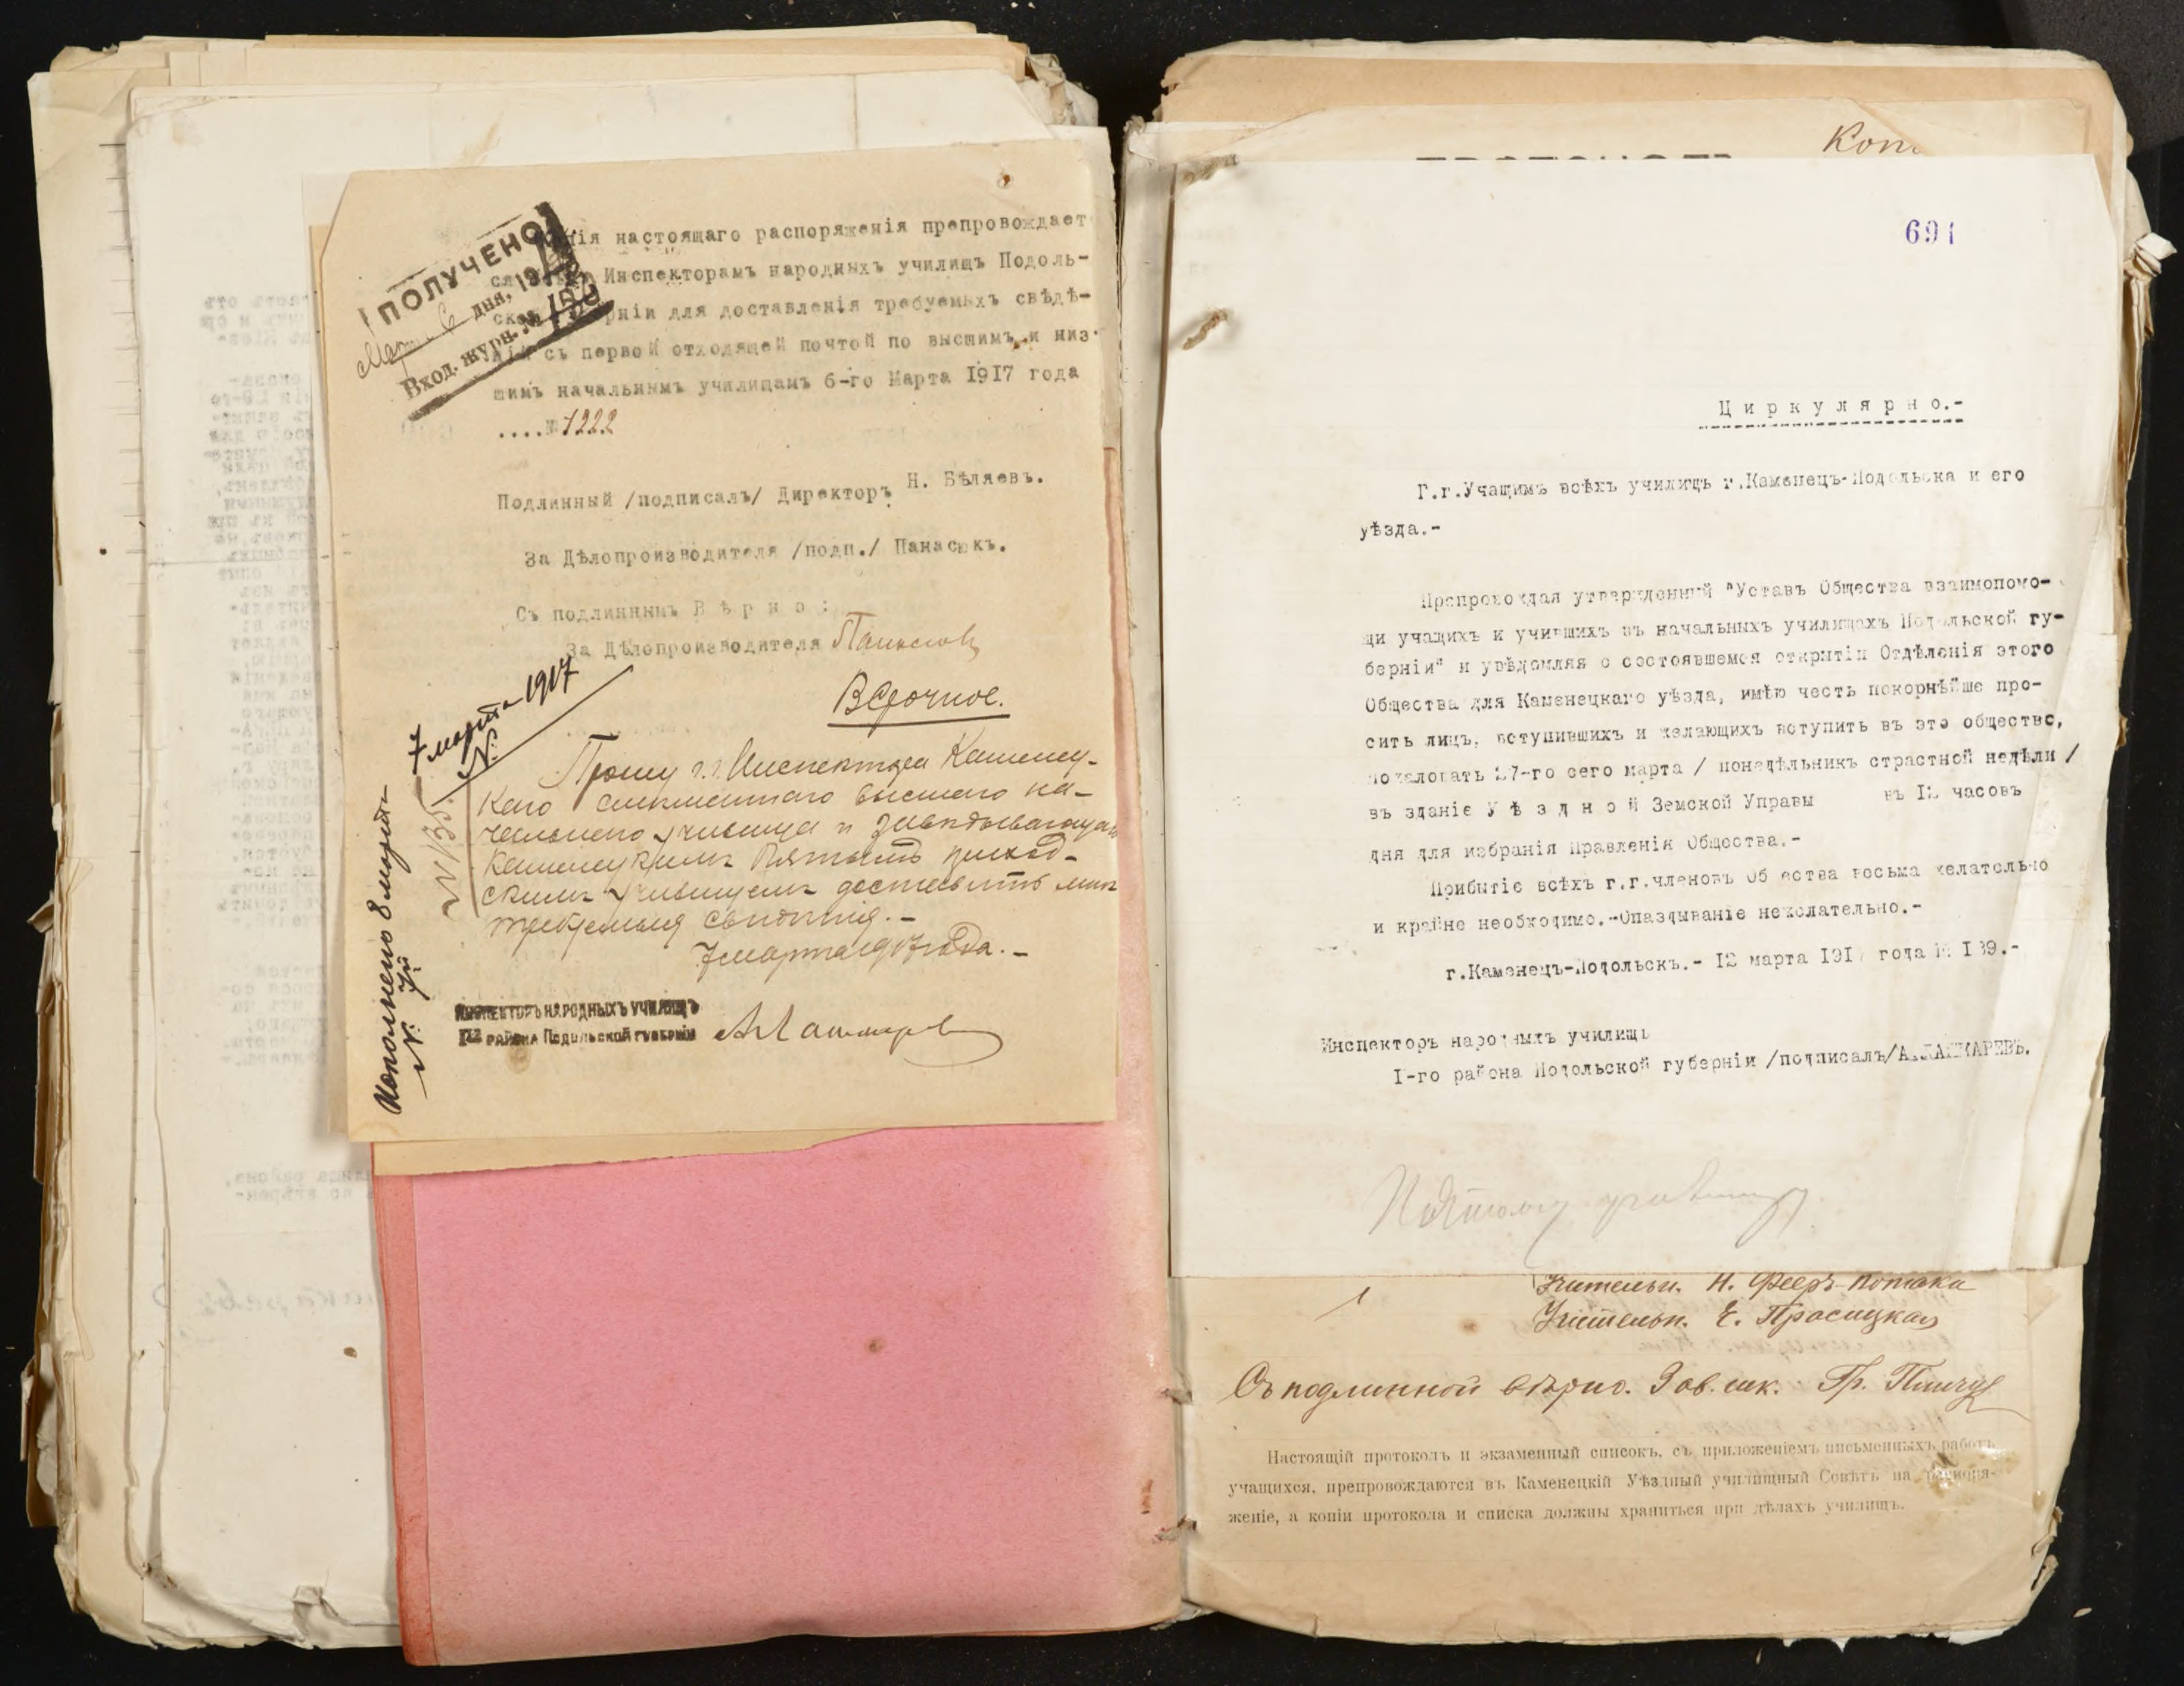 ПОЛУЧЕНО
6 дня, 191
Вход. журн. №
нія настоящаго распоряженія препровождает
Инспекторамъ народныхъ училищъ Подоль-
ской губерніи для доставленія требуемыхъ свѣдѣ-
ній съ первой отходящей почтой по высшимъ и низ-
шимъ начальнымъ училищамъ 6-го Марта 1917 года
....№ 1222
Подлинный /подписалъ/ Директоръ Н. Бѣляевъ.
За Дѣлопроизводителя /подп./ Панасюкъ.
Съ подлиннымъ В ѣ р н о :
За Дѣлопроизводителя Панасюкъ
7 марта 1917
№ 135.
В Срочное.
Прошу г.г. Инспектора Каменец-
каго высшаго на-
чальнаго училища и Завѣдывающаго
Каменецкимъ Пятымъ приход-
скимъ училищемъ доставить мнѣ
требуемыя свѣдѣнія.-
7 марта 1917 года.-
ИНСПЕКТОРЪ НАРОДНЫХЪ УЧИЛИЩЪ
РАЙОНА ПОДОЛЬСКОЙ ГУБЕРНІИ
Исполнено 8 марта
№
Коп
691
Ц и р к у л я р н о.-
Г.г.Учащимъ всѣхъ училищъ г.Каменецъ-Подольска и его
уѣзда.-
Препровождая утвержденный "Уставъ Общества взаимопомо-
щи учащихъ и учившихъ въ начальныхъ училищахъ Подольской гу-
берніи" и увѣдомляя о состоявшемся открытіи Отдѣленія этого
Общества для Каменецкаго уѣзда, имѣю честь покорнѣйше про-
сить лицъ, вступившихъ и желающихъ вступить въ это общество,
пожаловать 27-го сего марта / понедѣльникъ страстной недѣли /
въ зданіе У ѣ з д н о й Земской Управы въ 12 часовъ
дня для избранія Правленія Общества.-
Прибытіе всѣхъ г.г.членовъ Об ества весьма желательно
и крайне необходимо.-Опаздываніе нежелательно.-
г.Каменецъ-Подольскъ.- 12 марта 191 года № 139.-
Инспекторъ народныхъ училищъ
I-го района Подольской губерніи /подписалъ/
Пятому училищу
Учительн.
Учительн. Е.
Съ подлинной вѣрно. Зав. шк. Гр.
Настоящій протоколъ и экзаменный списокъ, съ приложеніемъ письменныхъ работъ
учащихся, препровождаются въ Каменецкій Уѣздный училищный Совѣтъ на распоря-
женіе, а копіи протокола и списка должны храниться при дѣлахъ училищъ.